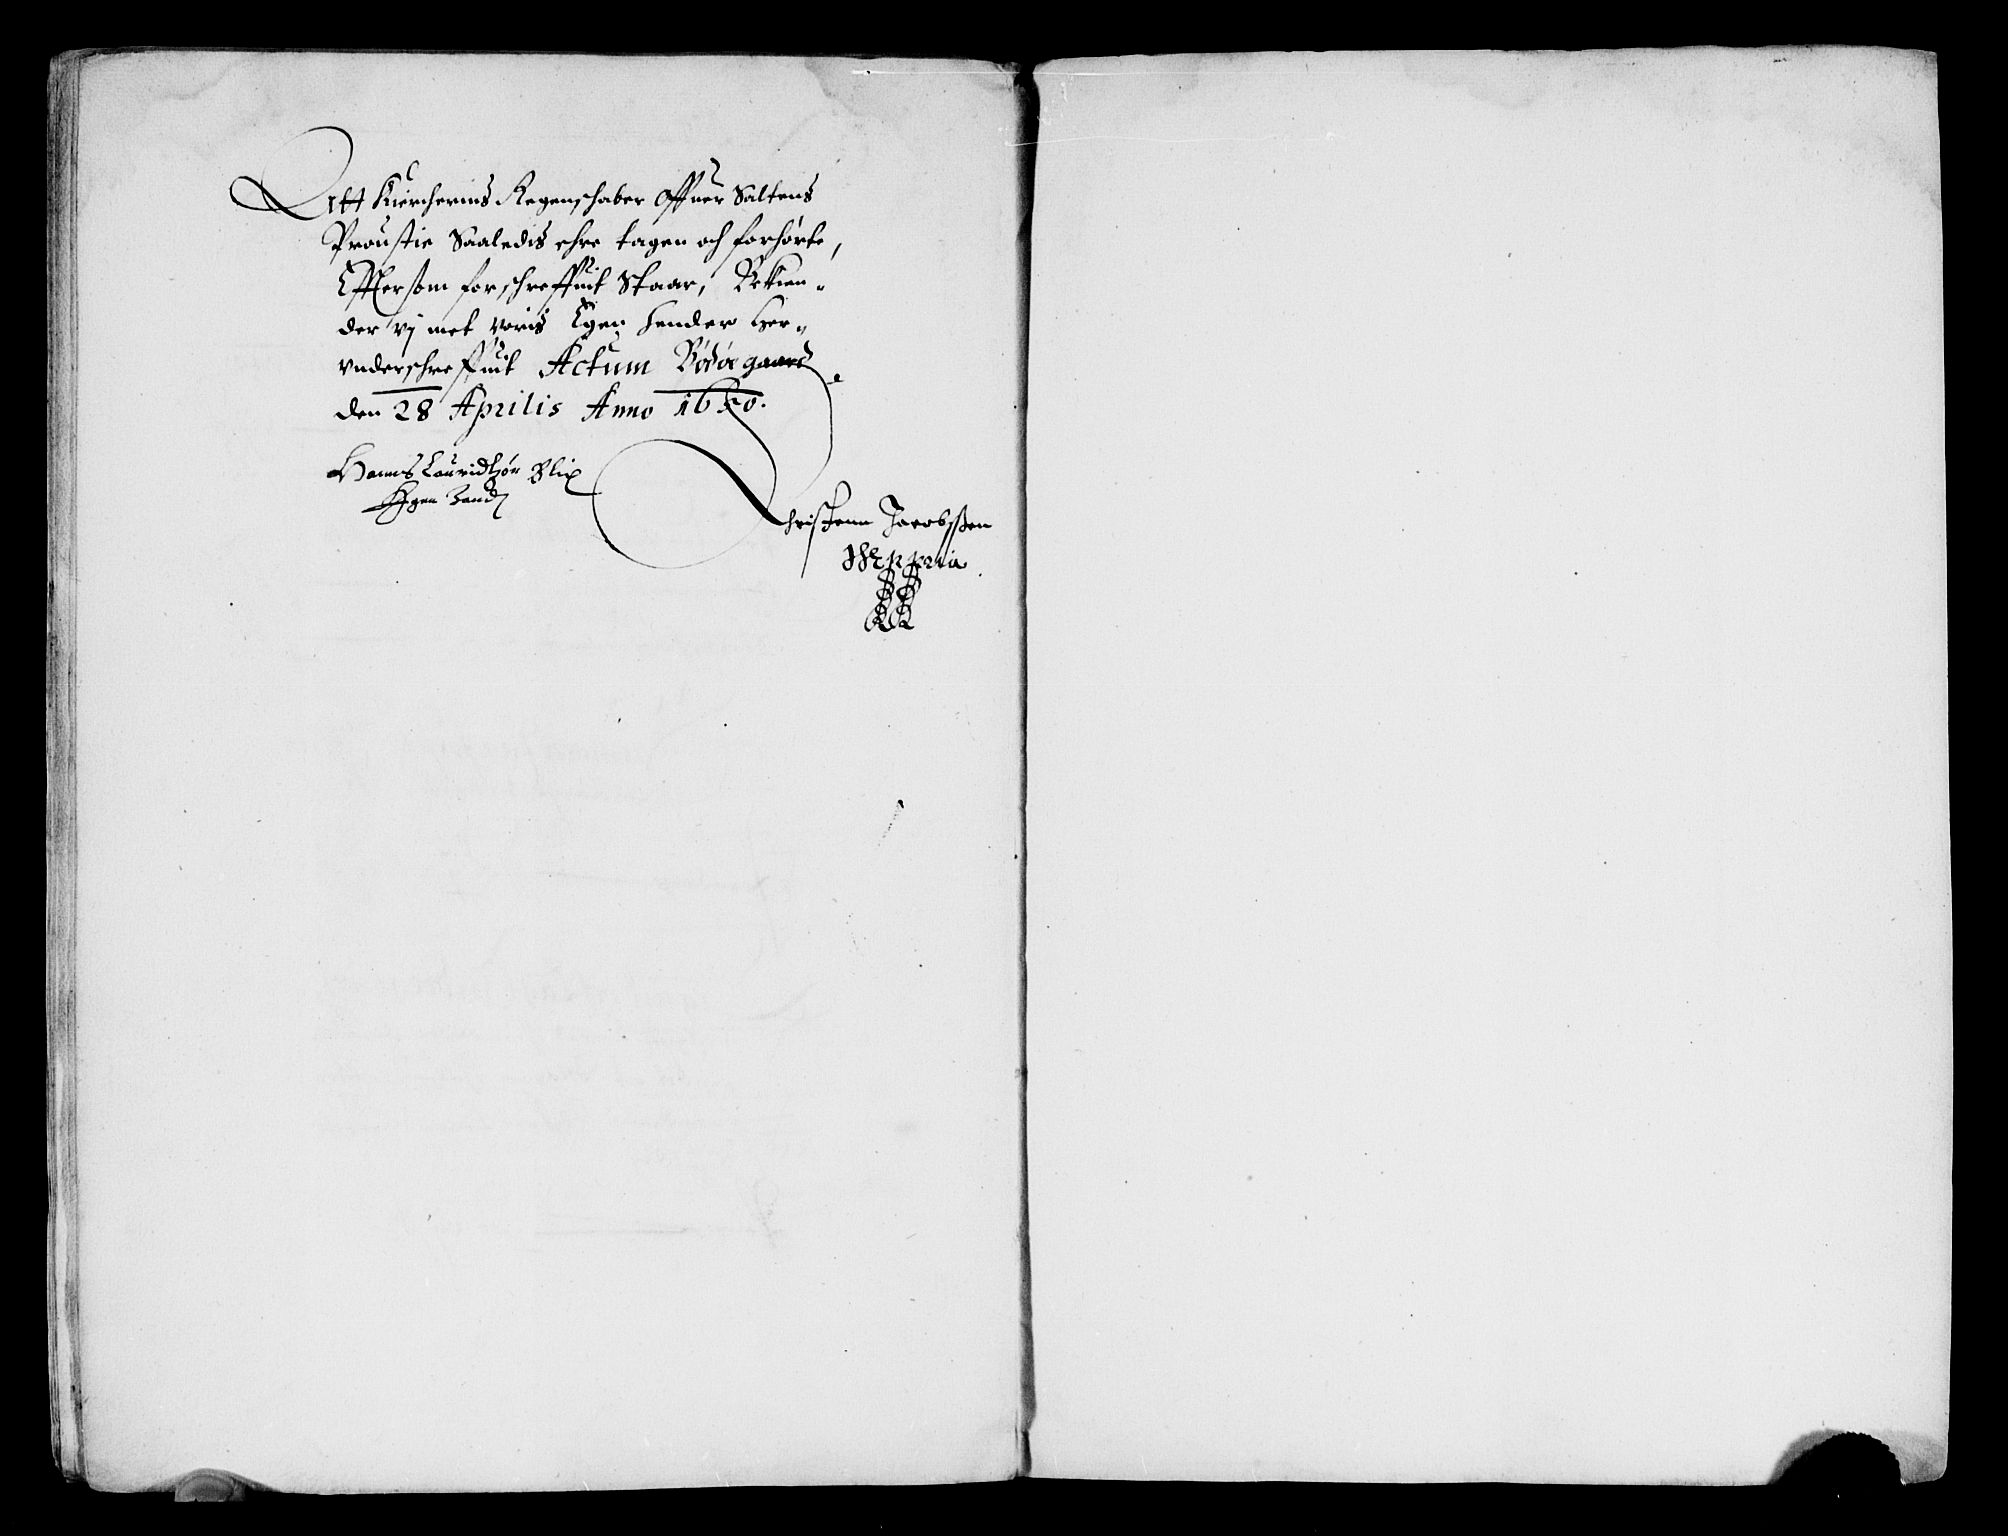 Att Kierchernis Regenschaber offuer Saltens
Proustie Saaledis ehre tagen och forhørte,
Efftersom forschreffuit Staar, Bekien„
der vj met voris Egen hender her„
vnderschreffuit Actum Bodøegaard
den 28 Aprilis Anno 1650.
Hanns Lauridtzøn Blix
Egen Handt
Christenn Jacobssen
Mppria